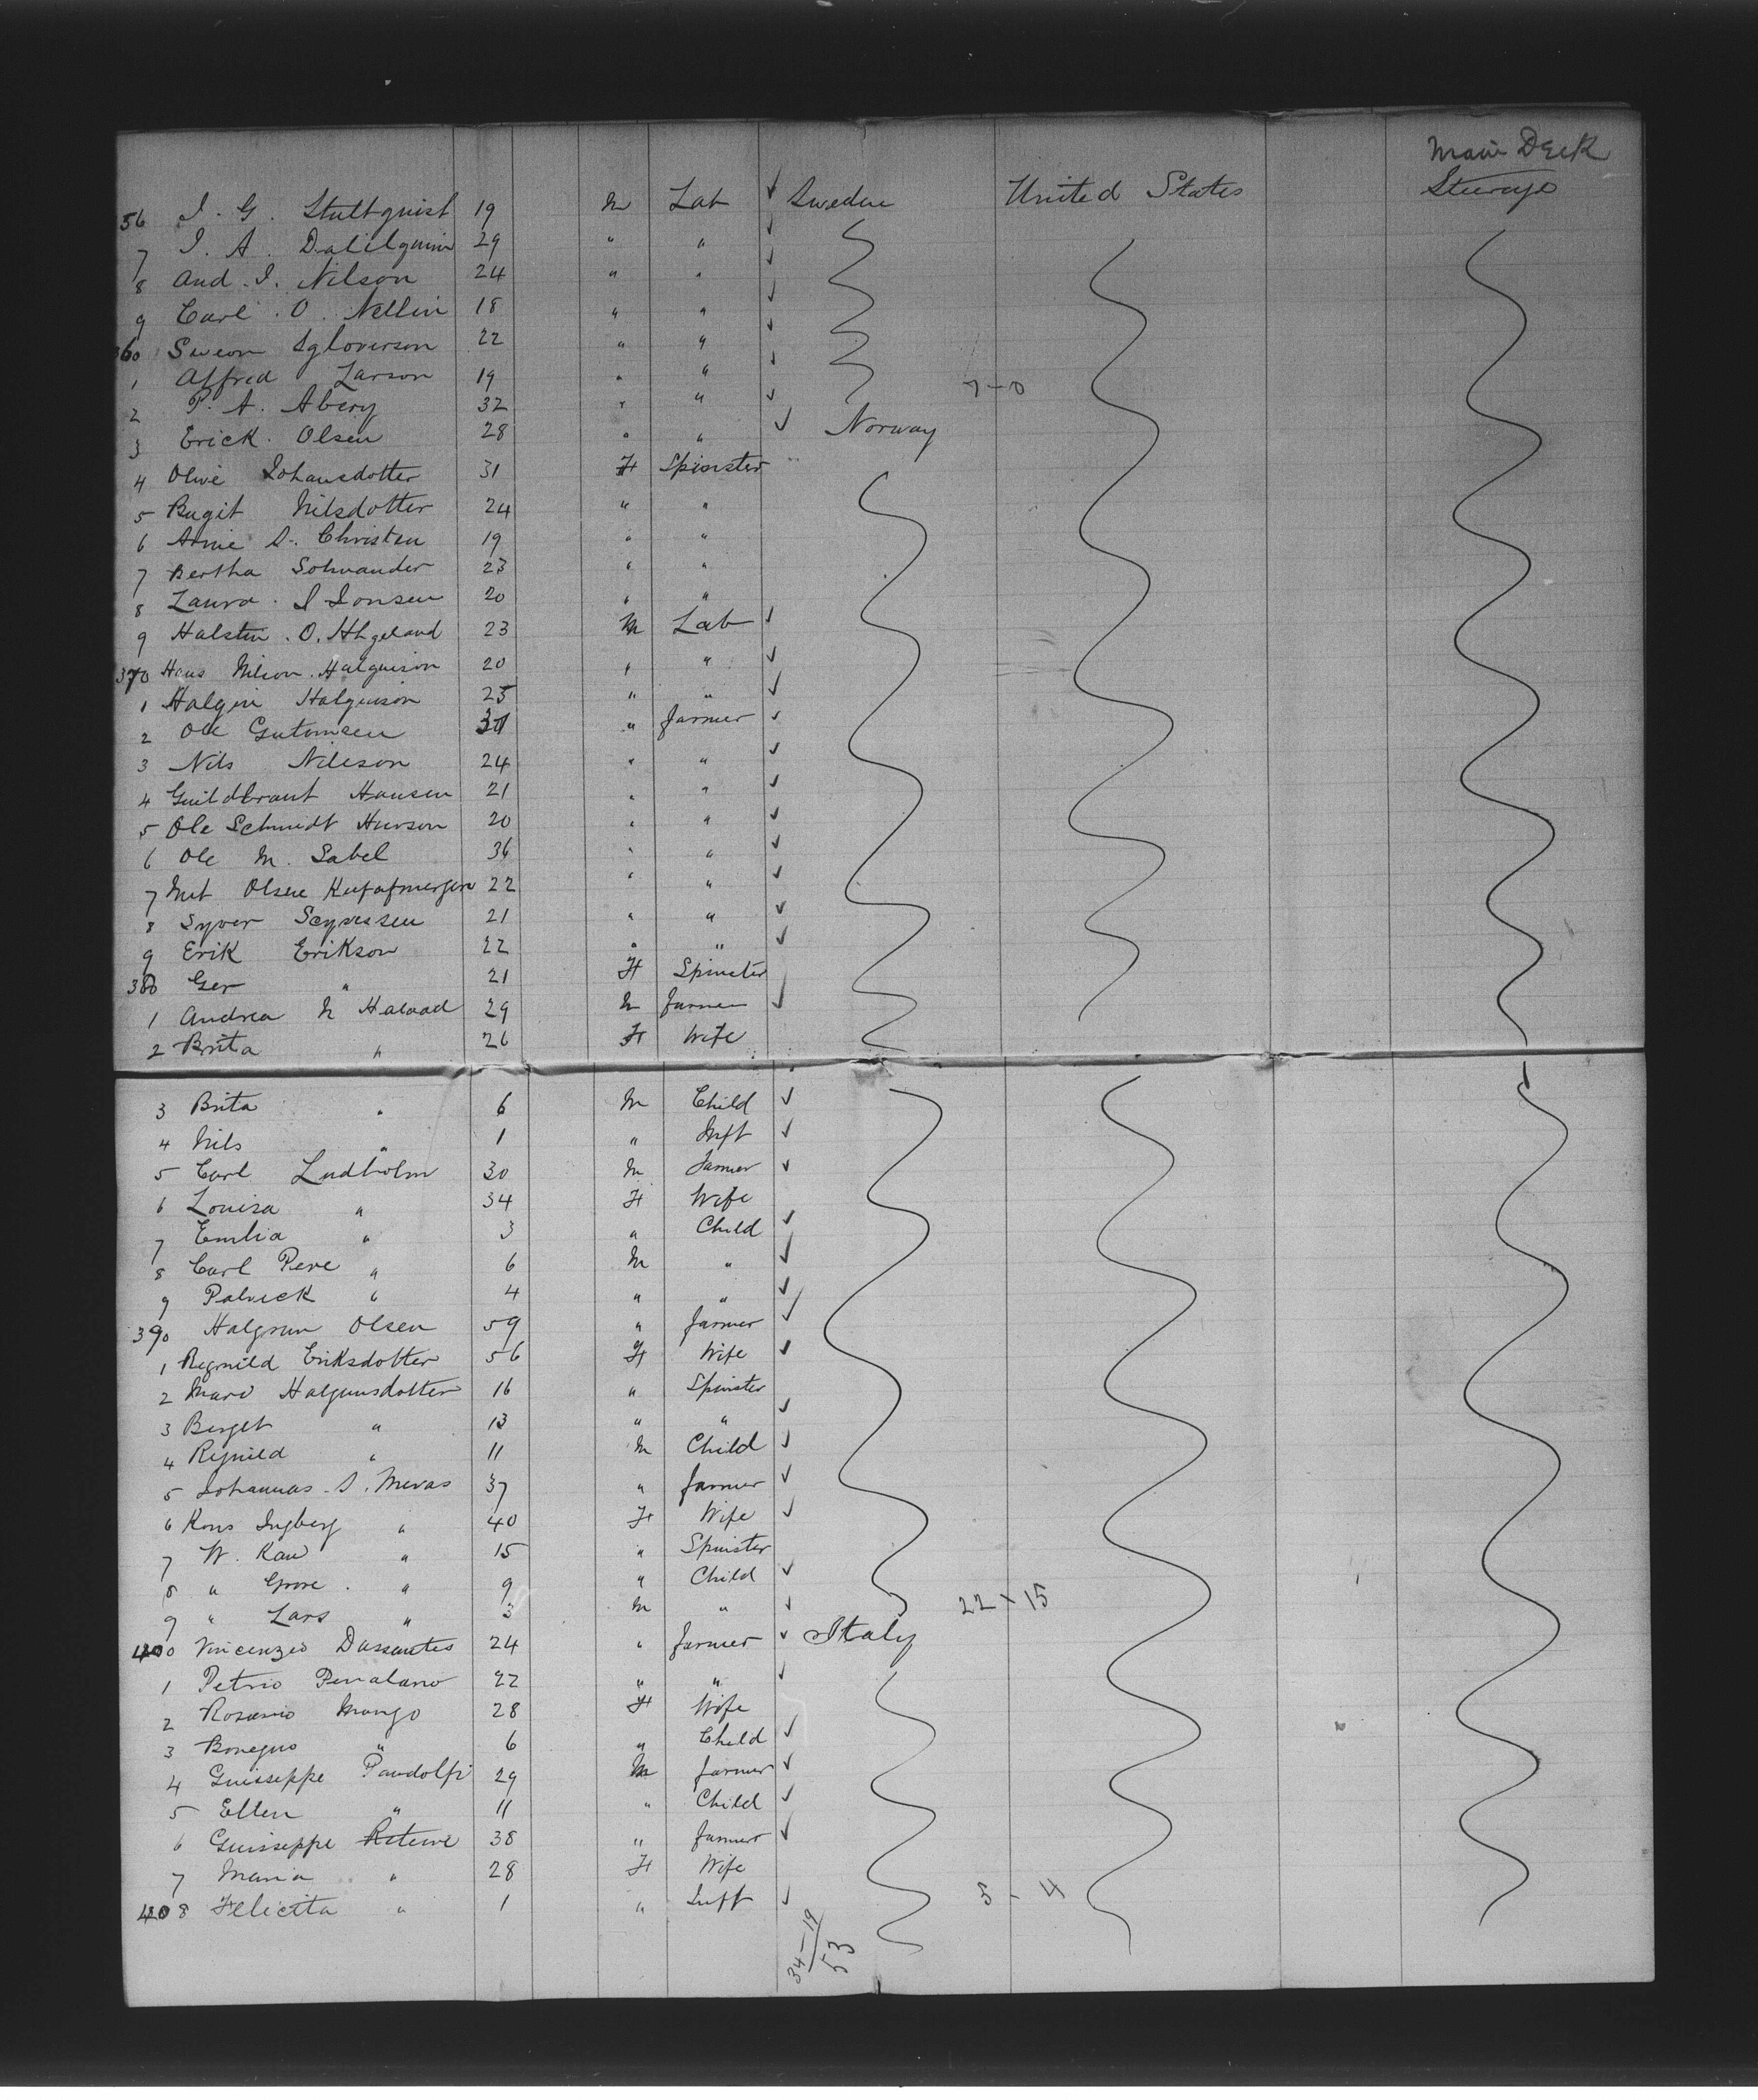 Main Deck
56 I. G. Stultquist 19 M Lab Sweden United States Steerage
7 I. A. Dalilquim 29 " "
8 And. I. Nilson 24 " "
9 Carl. O. Nellin 18 " "
360 Sweon Igloverson 22 " "
1 Alfred Larson 19 " "
2 P. A. Aberg 32 " " 7-0
3 Erick. Olsen 28 " " Norway
4 Olive Johansdotter 31 F Spinster "
5 Bugit Nilsdotter 24 " "
6 Arnie S. Christen 19 " "
7 Bertha Solwander 23 " "
8 Laura. I Jonsen 20 " "
9 Halstin. O. Hhgeland 23 M Lab
370 Haus Nilson. Halguison 20 " "
1 Halgin Halguison 25 " "
2 Ole Gutomsen " farmer
3 Nils Nilsson 24 " "
4 Guildbrant Hansen 21 " "
5 Ole Schmidt Huvson 20 " "
6 Ole M. Sabel 36 " "
7 Olsen 22 " "
8 Syver 21 " "
9 Erik Erikson 22 " "
380 Ger " 21 F Spinster
1 Andrea N Halvad 29 M farmer
2 Brita " 26 F Wife
3 Brita " 6 M Child
4 Nils " 1 " Inft
5 Carl Ludholm 30 M farmer
6 Louisa " 34 F Wife
7 Emlia " 3 " Child
8 Carl Pere " 6 M "
9 Palrick " 4 " "
390 Halgrum Olsen 59 " farmer
1 Regnild Eriksdotter 56 F Wife
2 Mard Halgumsdotter 16 " Spinster
3 Berget " 13 " "
4 Regnild " 11 M Child
5 Johannas. S. Mevas 37 " farmer
6 Kons Ingberg " 40 F Wife
7 W. Kaw " 15 " Spinster
8 " Grove. " 9 " Child
9 " Lars " 3 M " 22 x 15
400 Vincenzio Dassantes 24 " farmer Italy
1 Petrio Penalano 22 " "
2 Rosanio Mongo 28 F Wife
3 Boneguo " 6 " Child
4 Guisseppe Pandolfi 29 M farmer
5 Ellen " 11 " Child
6 Guisseppe Reteire 38 " farmer
7 Maria " 28 F Wife
408 Felicita " 1 " Inft 5 - 4
34-19
53